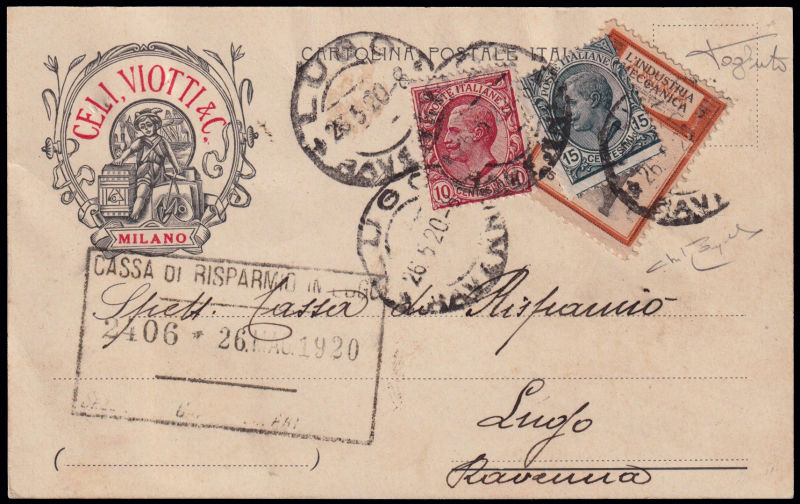 CARTOLINA POSTALE ITAL
CELI, VIOTTI & C.
MILANO
LUGO
26.5.20-8
RAVE
POSTE ITALIANE
10 CENTESIMI 10
POSTE ITALIANE
15 CENTES 15
L'INDUSTRIA
MECCANICA
LUGO
26.5.20-
RAVENNA
26
RAVE
CASSA DI RISPARMIO IN LUGO
2406 * 26.MAG.1920
Spett. Cassa di Risparmio
Lugo
Ravenna